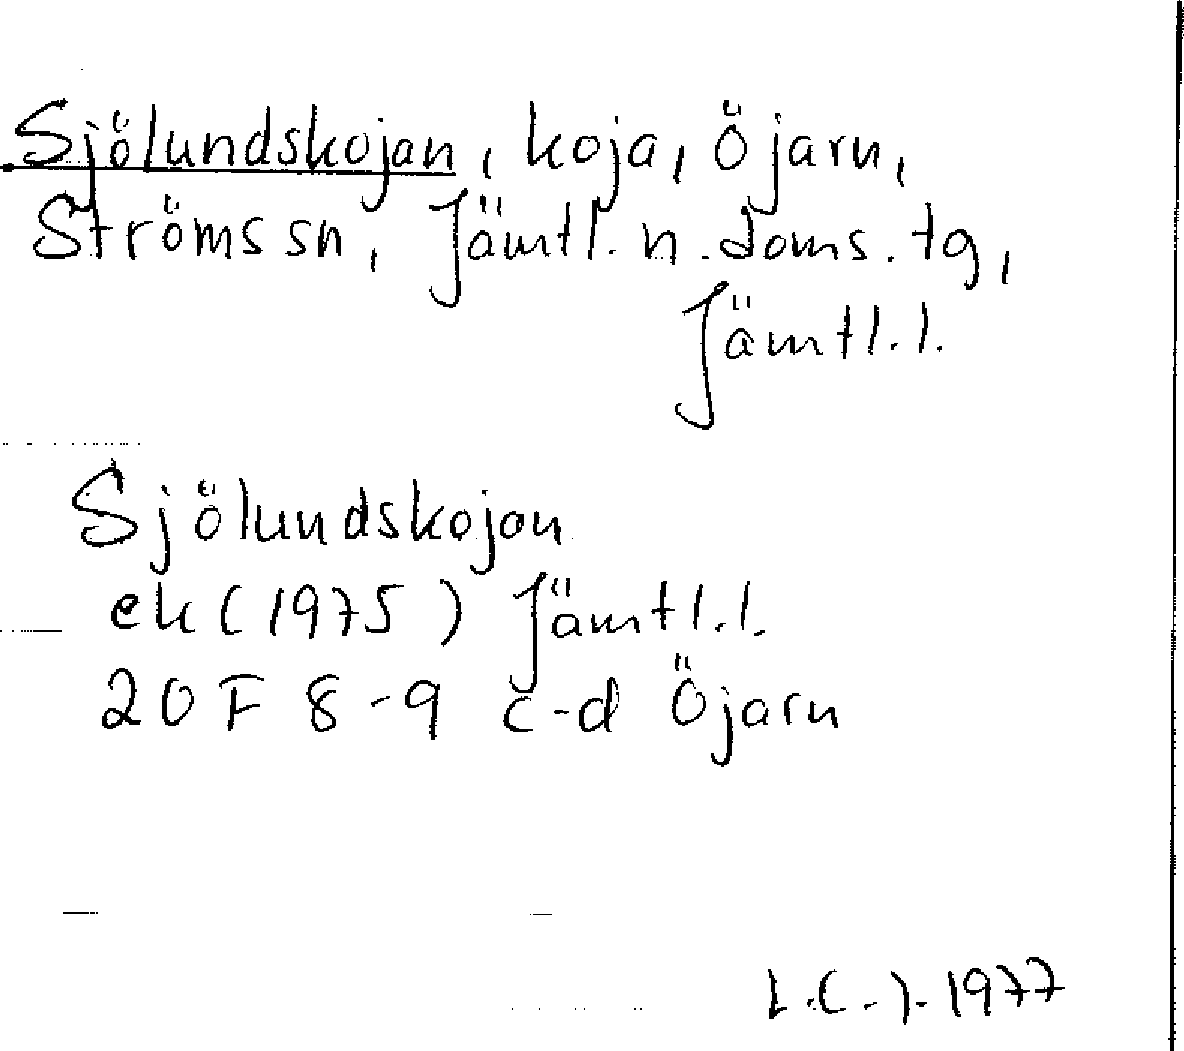 Sjölundskojan, koja, Öjarn,
Ströms sn, Jämtl. n. doms. tg,
Jämtl. l.
Sjölundskojan
ek (1975) Jämtl. l.
20 F 8-9 c-d Öjarn
1977